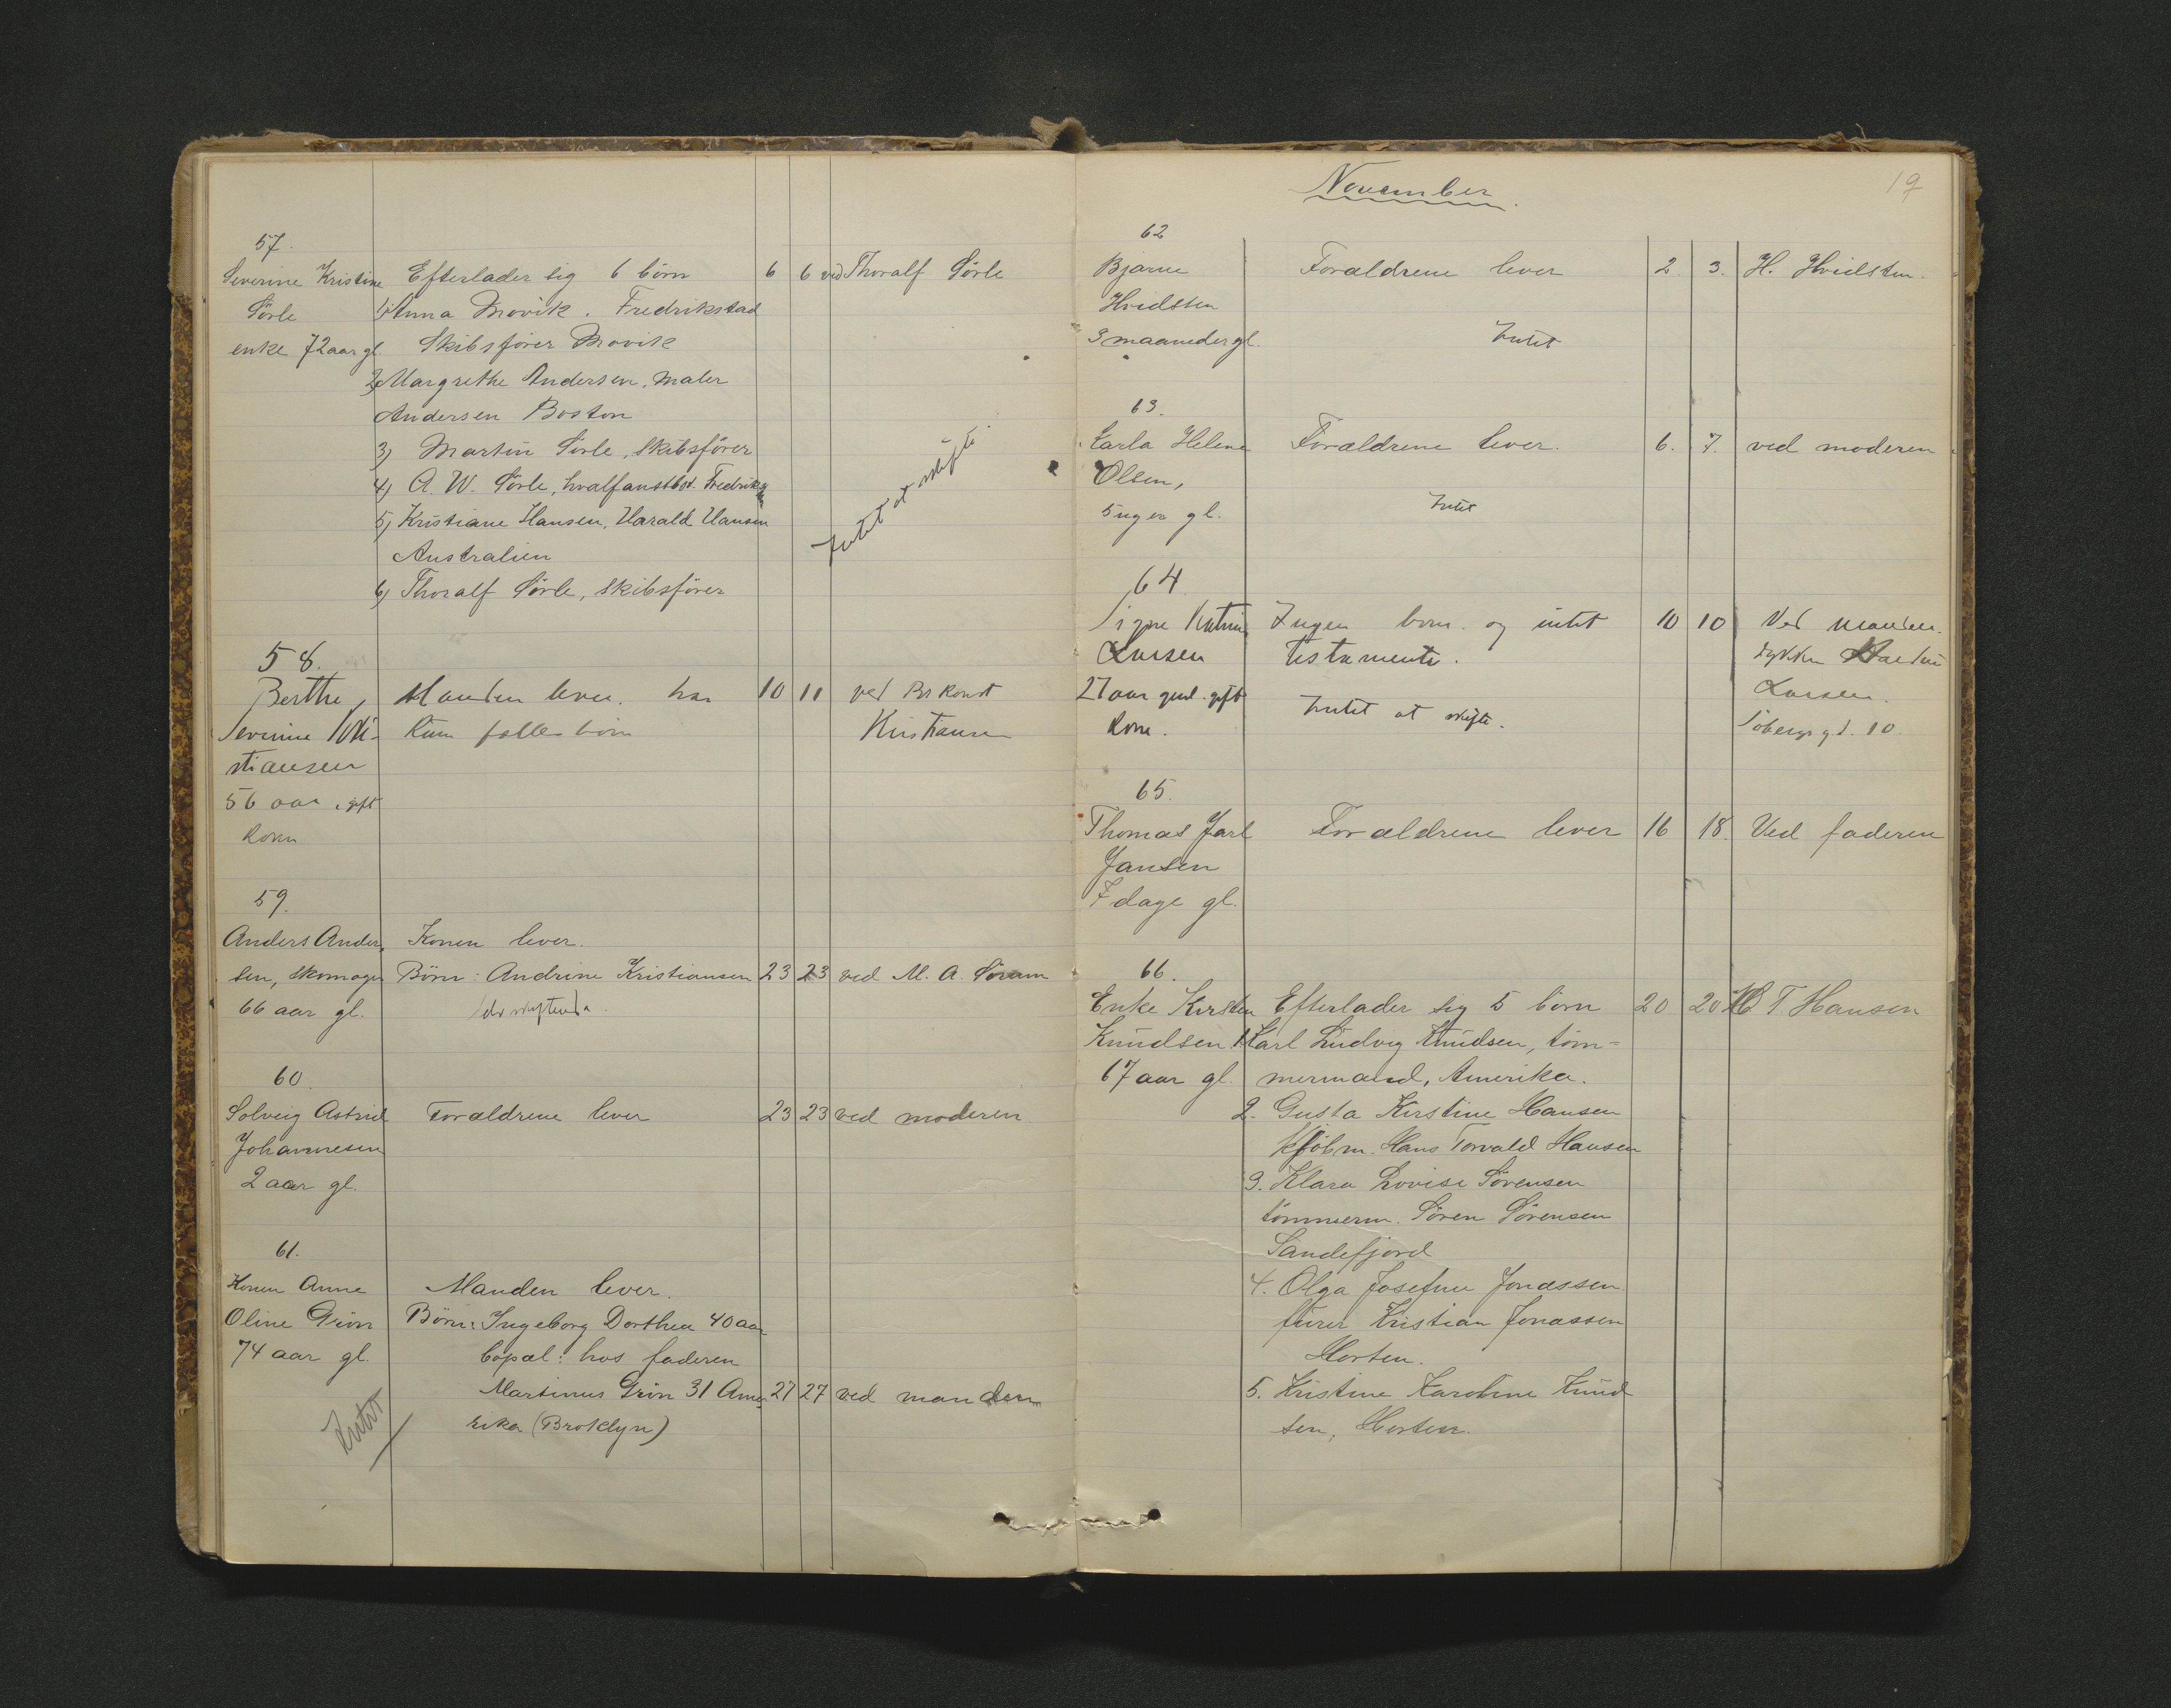 57.
Severine Kristine Efterlader sig 6 børn 6 6 ved Thoralf Sørle
Sørle 1) Anna Movik. Fredrikstad
enke 72 aar gl. Skibsfører Movik
2) Margrethe Andersen, maler
Andersen Boston
3) Martin Sørle, skibsfører
4) A. W. Sørle, hvalfangstbst. Fredrikst
5) Kristiane Hansen, Harald Hansen
Australien
6) Thoralf Sørle, skibsfører
Intet at skifte.
58.
Berthe Manden lever. har 10 11 ved
Severine Kri- kun felles børn Kristiansen
stiansen
56 aar, gift
kone
59.
Anders Ander- Konen lever.
sen, skomager Børn: Andrine Kristiansen 23 23 ved M. A. Søram
66 aar gl.
60.
Solveig Astrid Forældrene lever 23 23 ved moderen
Johannesen
2 aar gl.
61.
Konen Anne Manden lever.
Oline Grøn Børn: Ingeborg Dorthea 40 aar
74 aar gl. hos faderen
Martinus Grøn 31 Ame- 27 27 ved manden
rika (Broklyn)
Intet
November.
19
62
Bjarne Forældrene lever 2. 3. H. Hvidsten.
Hvidsten
3 maaneder gl. Intet
63.
Karla Helene Forældrene lever. 6. 7. ved moderen
Olsen,
5 uger gl. Intet
64
Signe Katrine Ingen born. og intet 10 10 Ved manden.
Larsen testamente.
27 aar gml. gift Larsen.
kone. Intet at skifte. Søbergs gd. 10.
65.
Thomas Jarl Forældrene lever 16 18. Ved faderen
Jansen
7 dage gl.
66.
Enke Kirsten Efterlader sig 5 børn 20 20 H T Hansen
Knudsen 1. Karl Ludvig Knudsen, tøm-
67 aar gl. mermand, Amerika.
2. Gusta Kirstine Hansen
kjøbm. Hans Torvald Hansen
3. Klara Lovise Sørensen
tømmerm. Søren Sørensen
Sandefjord
4. Olga Josefine Jonassen
fürer Kristian Jonassen
Horten.
5. Kristine Karoline Knud
sen, Horten.